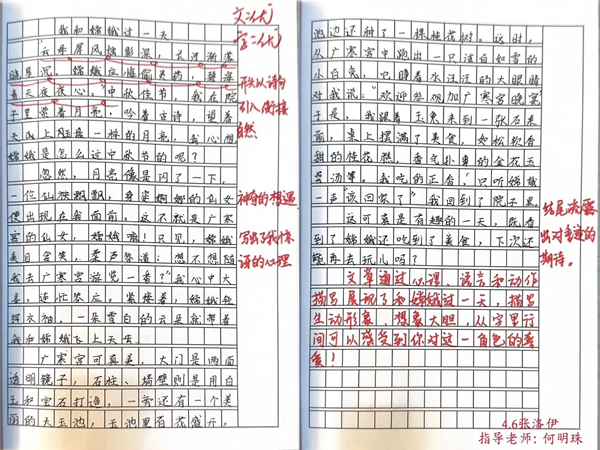 我和嫦娥过一天
云母屏风烛影深，长河渐落
晓星沉。嫦娥应悔偷灵药，碧海
青天夜夜心。”中秋佳节，我在院
子里赏着月亮，吟着古诗，望着
天上一样的月亮，我心想，
嫦娥是怎么过中秋节的呢？
忽然，月亮像是闪了一下，
一位仙袂飘飘，身姿婀娜的仙女
便出现在我面前，这不就是广寒
宫的仙女，嫦娥嘛！只见，嫦娥
美目含笑，柔声第道：想不想随
我去广寒宫游览一番？”我心中大
喜，连忙答应。紧接着，嫦娥轻
挥衣袖，一朵雪白的云朵就带着
我和嫦娥飞上天去。
广寒宫可真美，大门是两面
透明镜子，石柱、墙壁则是用白
玉和宝石打造，一旁还有一个美
丽的大玉池，玉池里百花盛开，
文：优
字：优
开头以诗句
引入衔接
自然
神奇的想遇，
写出了我惊
讶的心理
池边还种了一棵桂花树。这时，
从广寒宫中跑出一只洁白如雪的
小白兔，它睁着水汪汪的大眼睛
对我说：“欢迎参观加广寒宫晚宴
于是，我跟着玉兔来到一张石桌
前，桌上摆满了美食，如松软香
甜的桂花糕，香气扑鼻的金花玉
露汤等。我吃的正香，只听嫦娥
一声“该回家了”我回到了院子里
这可真是有趣的一天，既看
到了嫦娥还吃到了美食，下次还
能再去玩儿吗？
结尾流露
出对奇遇的
期待。
文章通过心理、语言和动作
描写展现了和嫦娥过一天，描写
生动形象，想象大胆，从字里行
间可以感受到你对这一角色的喜
爱！
4.6张洛伊
指导老师：何明珠